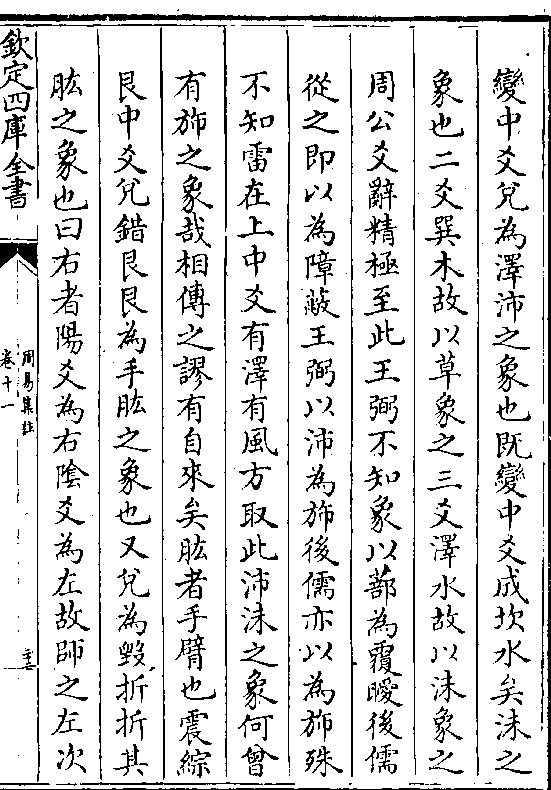 變中爻兌為澤沛之象也既變中爻成坎水矣沬之
象也二爻巽木故以草象之三爻澤水故以沬象之
周公爻辭精極至此王弼不知象以蔀為覆曖後儒
從之即以為障蔽王弼以沛為斾後儒亦以為斾殊
不知雷在上中爻有澤有風方取此沛沬之象何曾
有斾之象哉相傳之謬有自來矣肱者手臂也震綜
艮中爻兌錯艮艮為手肱之象也又兌為毀折折其
肱之象也曰右者陽爻為右陰爻為左故師之左次
欽定四庫全書
周易集註
卷十一